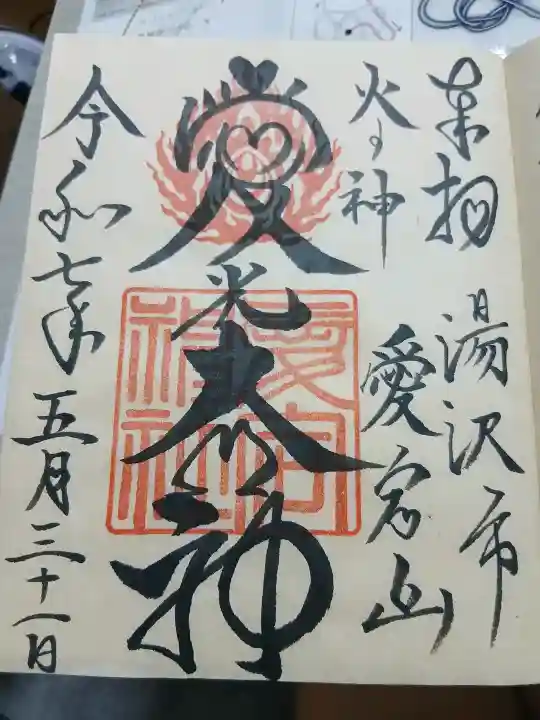 奉拝 湯沢市
火の神 愛宕山
愛光大神
愛宕神社
令和七年五月三十一日